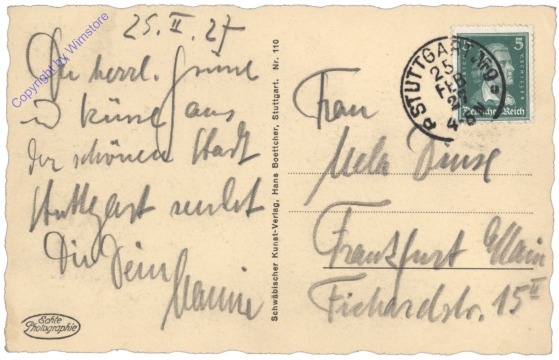 25. II. 27
Die herzl. Grüße
u Küsse aus
der schönen Stadt
Stuttgart sendet
Dir Dein
Copyright by Wimstore
Echte
Photographie
Schwäbischer Kunst-Verlag, Hans Boettcher, Stuttgart. Nr. 110
STUTTGART No 9
25
FEB
27
Deutsches Reich
5
Frau
Frankfurt a/Main
Fichardstr. 15 II